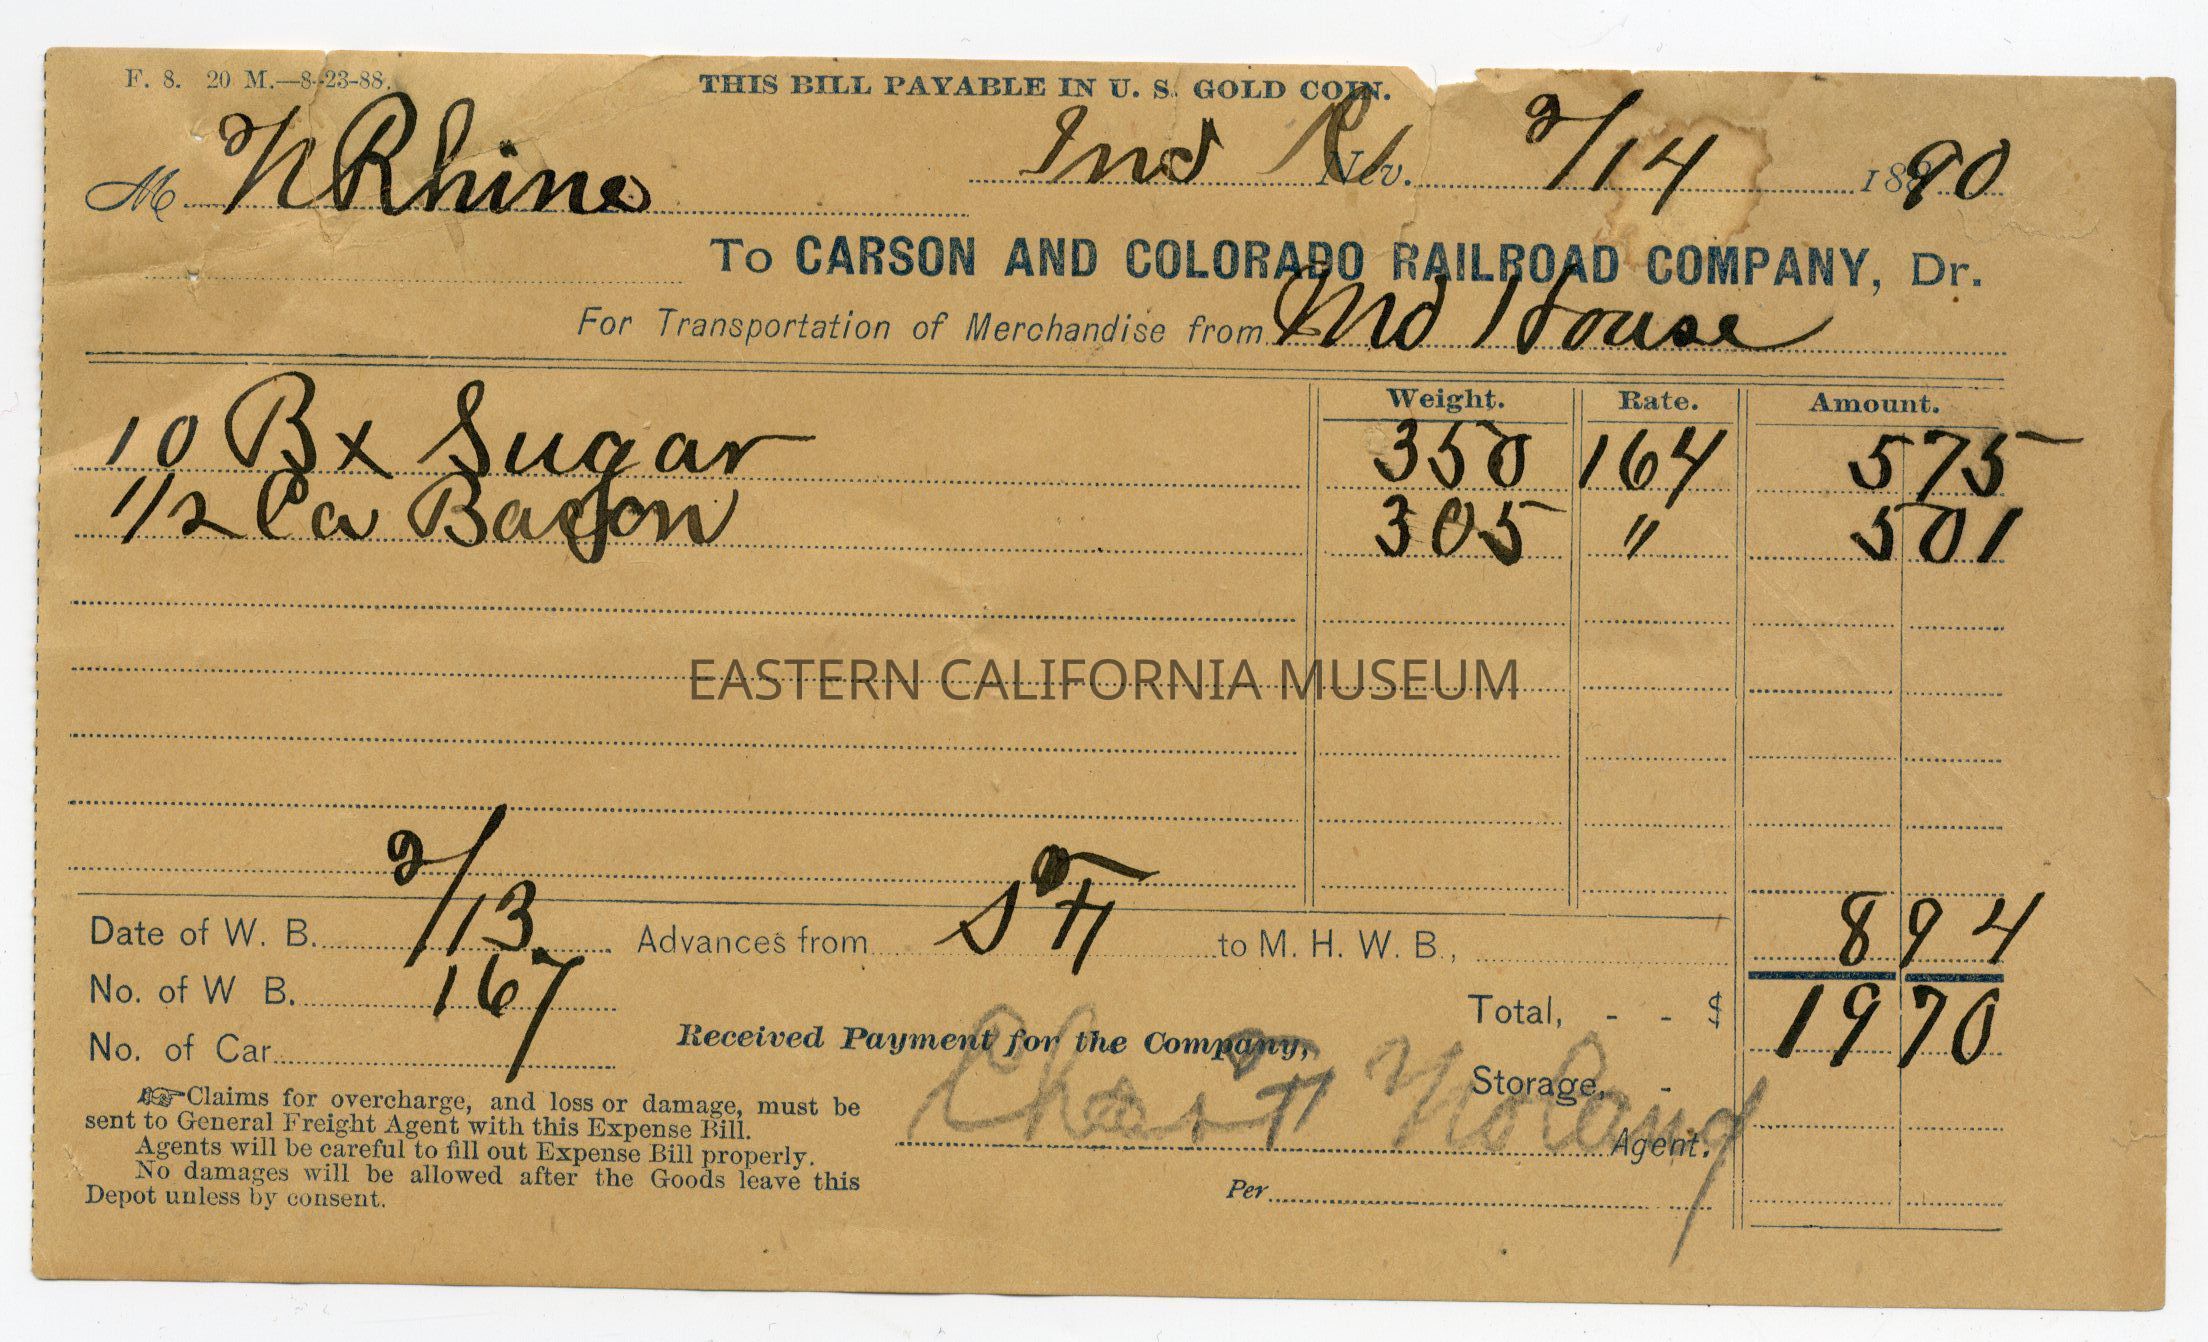 F. 8. 20 M.—8-23-88.
THIS BILL PAYABLE IN U. S. GOLD COIN.
M N Rhine Ind Nev. 2/14 1890
To CARSON AND COLORADO RAILROAD COMPANY, Dr.
For Transportation of Merchandise from Md House
Weight. Rate. Amount.
10 Bx Sugar 350 164 575
1/2 Ca Bacon 305 " 501
EASTERN CALIFORNIA MUSEUM
Date of W. B. 2/13 Advances from to M. H. W. B., 894
No. of W B. 167
Total, - - $ 1970
No. of Car
Received Payment for the Company,
Storage, -
Chas Agent.
Per
☞Claims for overcharge, and loss or damage, must be
sent to General Freight Agent with this Expense Bill.
Agents will be careful to fill out Expense Bill properly.
No damages will be allowed after the Goods leave this
Depot unless by consent.